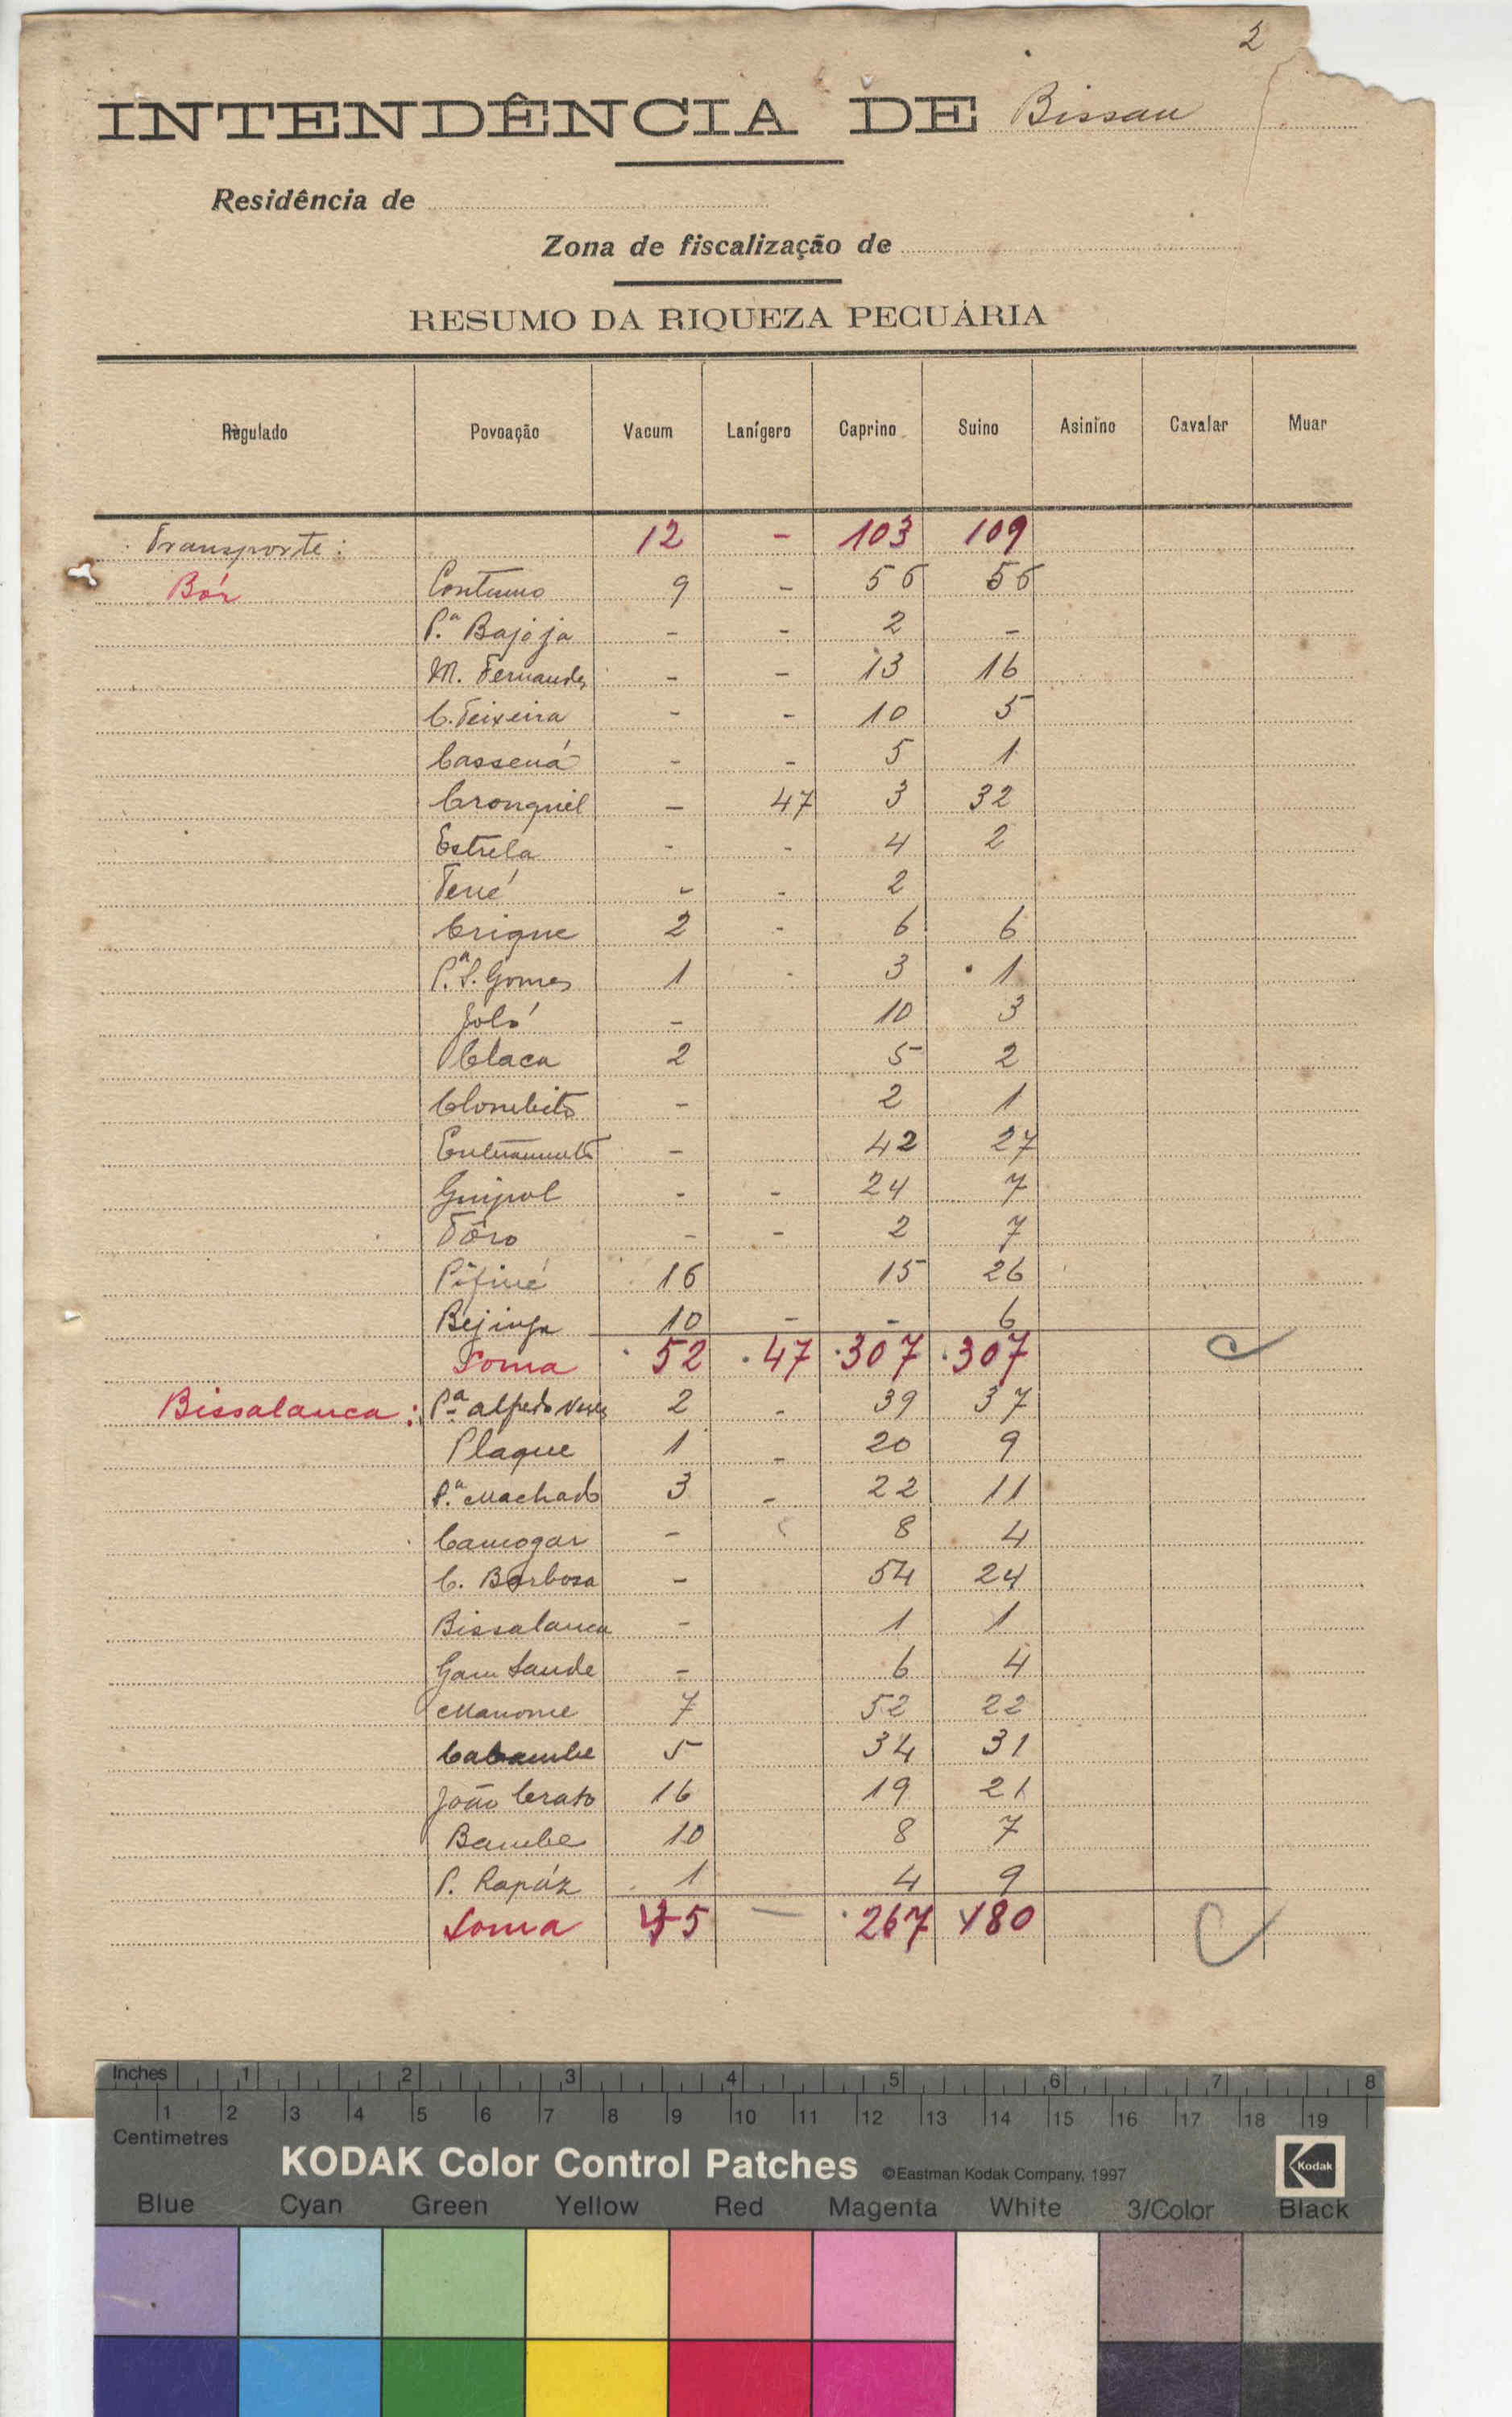 2
INTENDÊNCIA DE Bissau
Residência de
Zona de fiscalização de
RESUMO DA RIQUEZA PECUÁRIA
Regulado Povoação Vacum Lanígero Caprino Suino Asinino Cavalar Muar
Transporte: 12 - 103 109
Bór Contumo 9 - 56 56
P.ª Bajója - - 2 -
M. Fernandes - - 13 16
C. Teixeira - - 10 5
Cassená - - 5 1
Cronquil - 47 3 32
Estrela - - 4 2
Terré - - 2
Crique 2 - 6 6
P.ª S. Gomes 1 - 3 1
Joló - 10 3
Claca 2 5 2
Clombito - 2 1
- 42 27
Guipol - - 24 7
Tôro - - 2 7
Pifiné 16 15 26
Bejinga 10 - - 6
Soma 52 47 307 307
Bissalanca: P.ª Alfredo Neves 2 - 39 37
Plaque 1 - 20 9
P.ª Machado 3 - 22 11
Camogar - 8 4
C. Barbosa - 54 24
Bissalanca - 1 1
Gam Sande - 6 4
Manome 7 52 22
Cabambe 5 34 31
João Crato 16 19 21
Bambe 10 8 7
P. Rapáz 1 4 9
Soma 45 - 267 180
Inches 1 2 3 4 5 6 7 8
1 2 3 4 5 6 7 8 9 10 11 12 13 14 15 16 17 18 19
Centimetres
KODAK Color Control Patches ©Eastman Kodak Company, 1997 Kodak
Blue Cyan Green Yellow Red Magenta White 3/Color Black